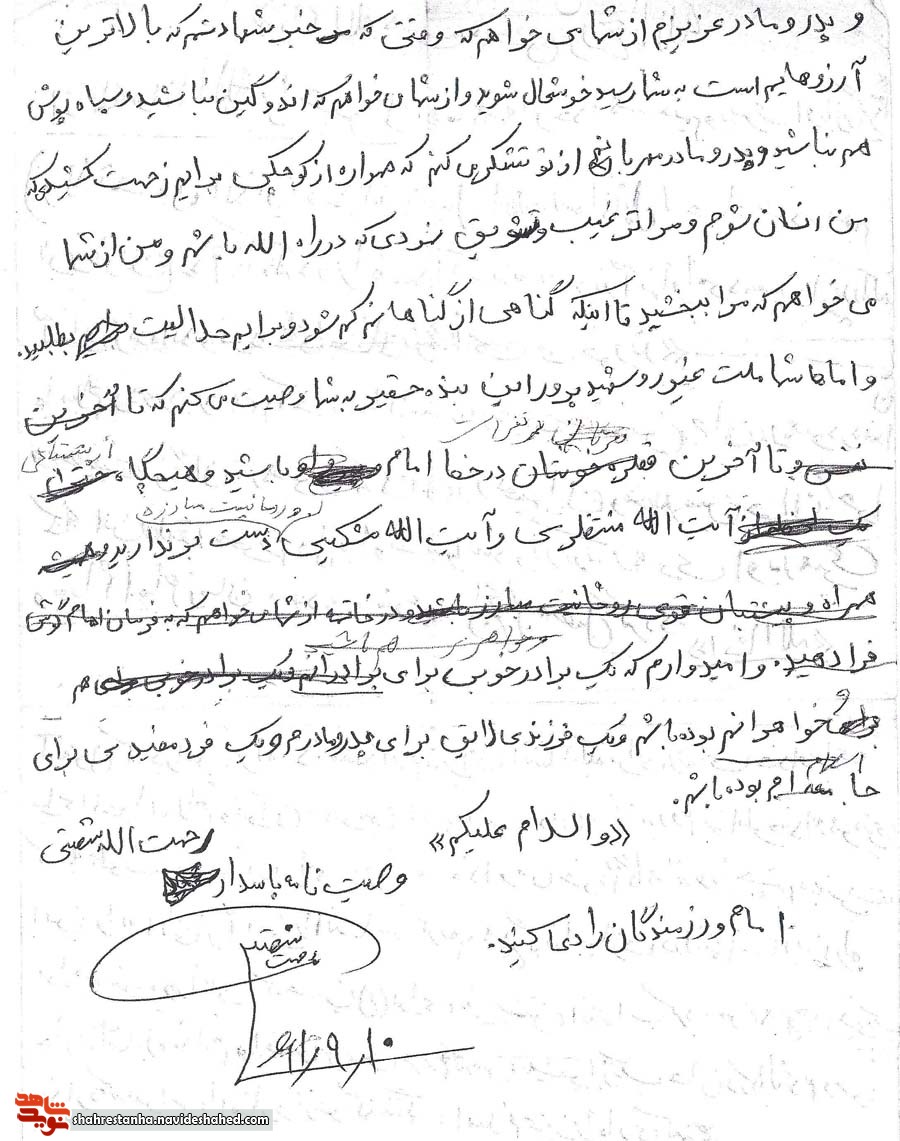 و پدر و مادر عزیزم از شما می خواهم که وقتی که خبر شهادتم که بالاترین
آرزوهایم است به شما رسید خوشحال شوید و از شما می خواهم که اندوگین نباشید و سیاه پوش
هم نباشید و پدر و مادر مهربانم از تو تشکر می کنم که همواره از کوچکی برایم زحمت کشیدی که
من انسان شوم و مرا ترغیب و تشویق نمودی که در راه الله باشم و من از شما
می خواهم که مرا ببخشید تا اینکه گناهی از گناهانم کم شود و برایم حلالیت بطلبید.
و اما شما ملت غیور و شهید پرور این بنده حقیر به شما وصیت می کنم که تا آخرین
نفس و تا آخرین قطره خونتان در خط امام باشید و هیچگاه از پشتیبانی
آیت الله منتظری و آیت الله مشکینی و روحانیت مبارزه دست بر ندارید و همیشه
همراه و پشتیبان قوی روحانیت مبارز باشید و در خاتمه از شما می خواهم که به فرمان امام گوش
فرا دهید. و امیدوارم که یک برادر خوبی برای برادرانم و یک برادر خوبی برای هم
خواهرانم بوده باشم و یک فرزندی لایق برای پدر و مادرم و یک فرد مفیدی برای
جامعه اسلام بوده باشم.
«والسلام علیکم»
رحمت الله شفقتی
وصیت نامه پاسدار
امام و رزمندگان را دعا کنید.
۶۱/۹/۱۰
شاهد
نوید
shahrestanha.navideshahed.com